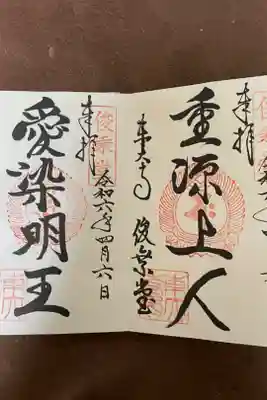 奉拝
重源上人
東大寺 俊乗堂
奉拝
令和六年四月六日
愛染明王
俊乗堂